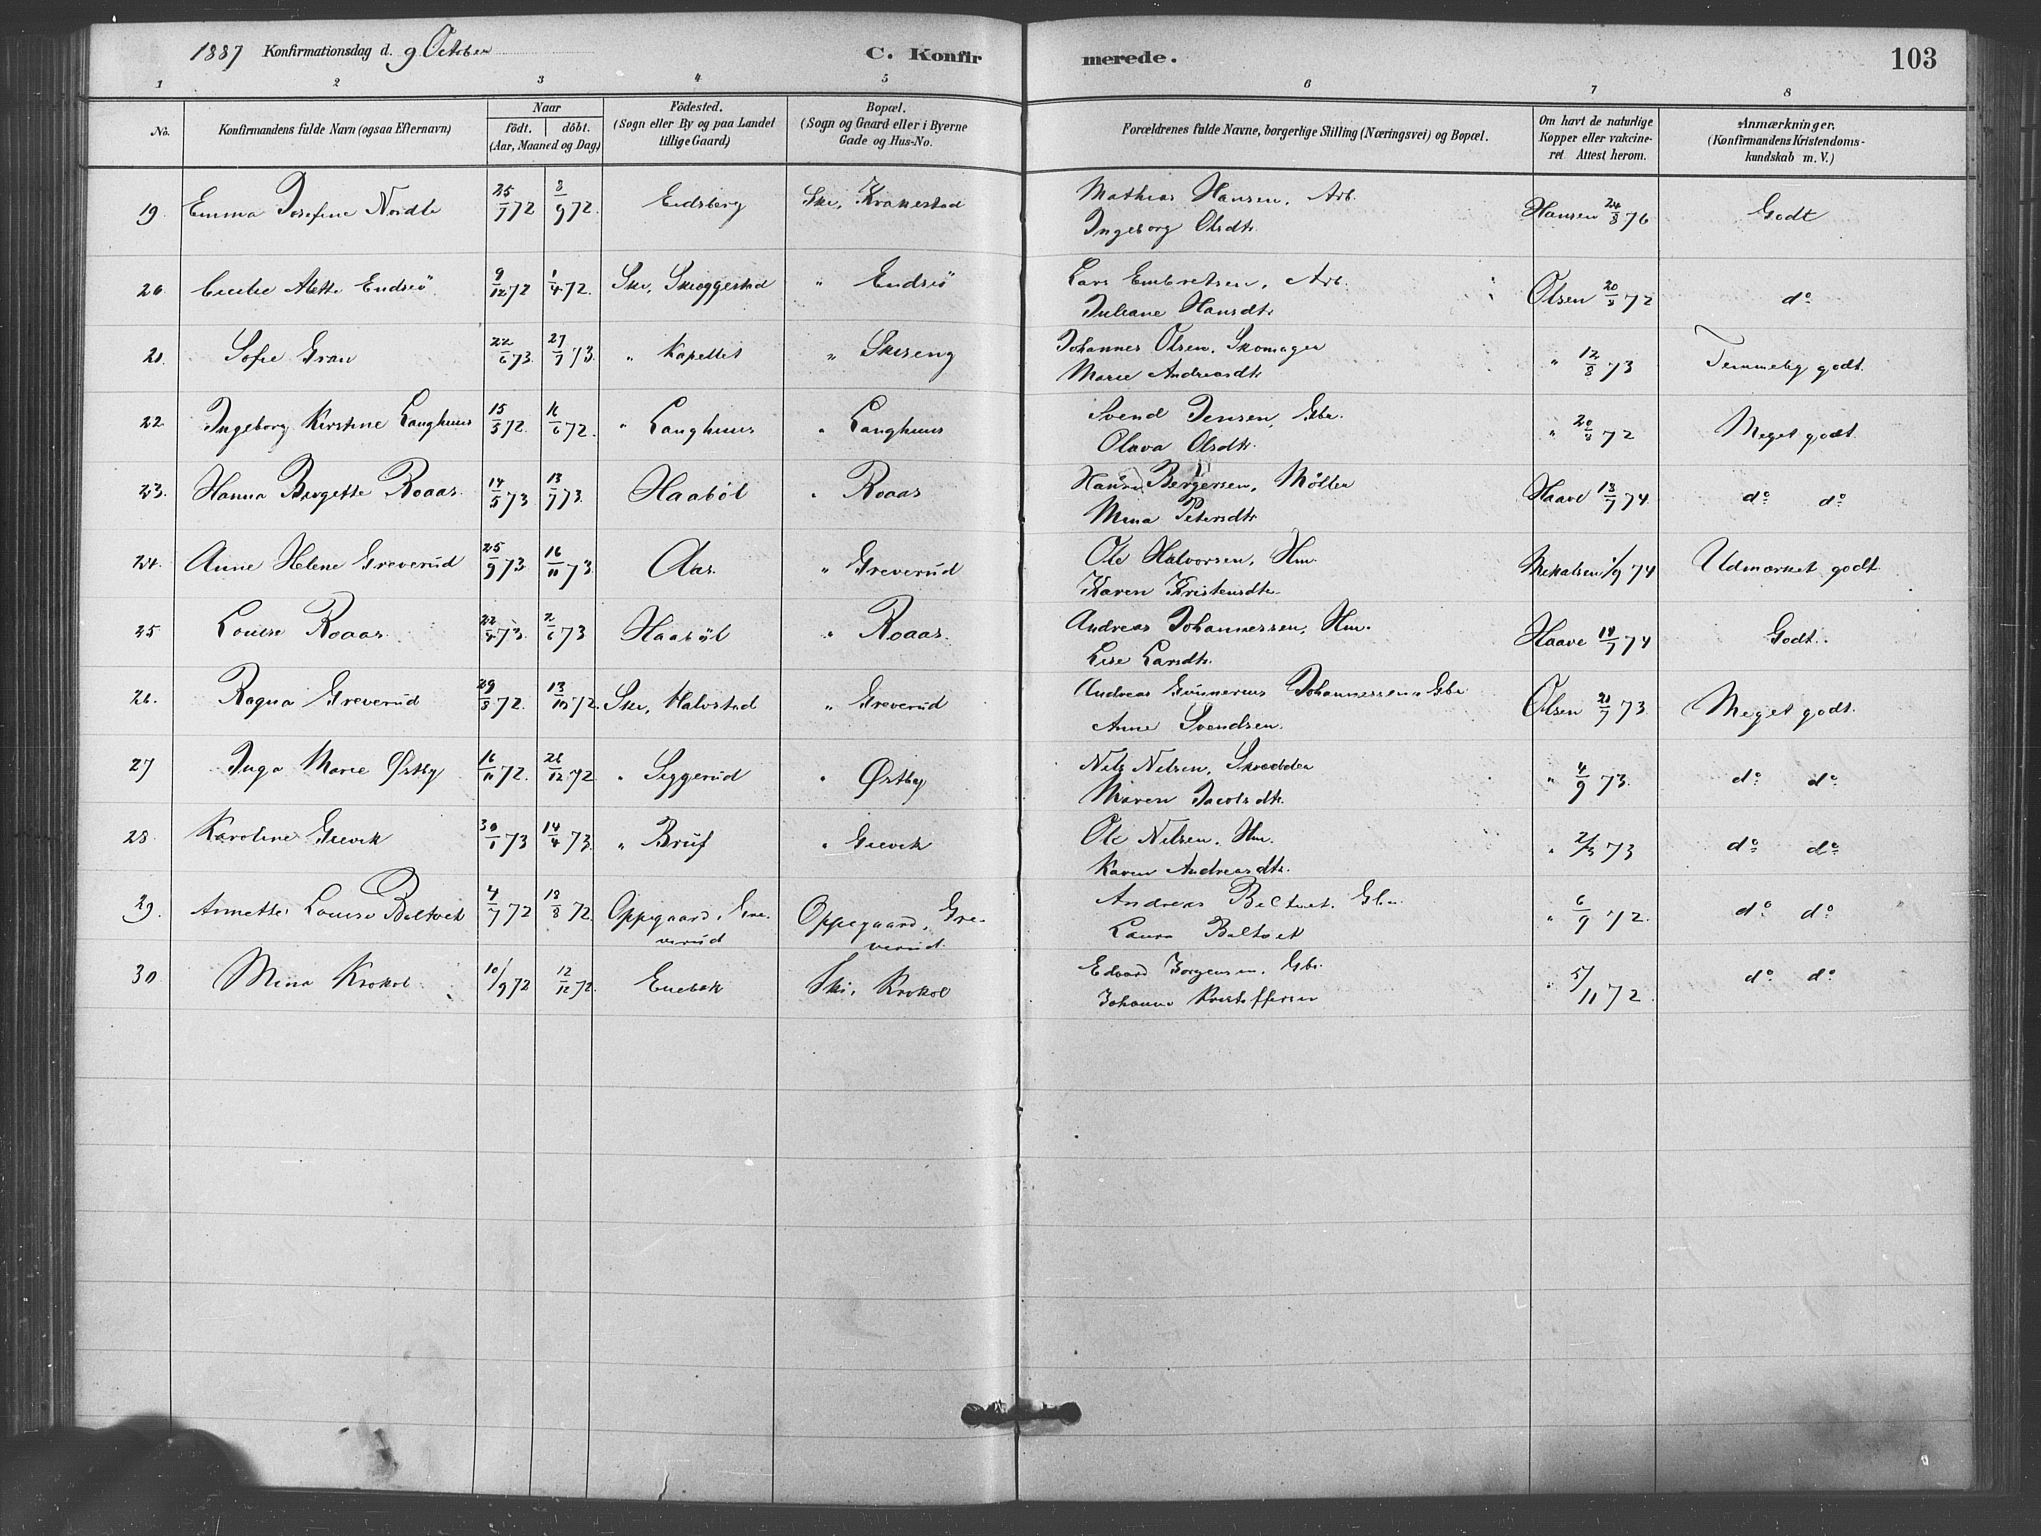 1887 Konfirmationsdag d. 9 October C. Konfirmerede. 103
1 2 3 4 5 6 7 8
No. Konfirmandens fulde Navn (ogsaa Efternavn) Naar födt. döbt. (Aar, Maaned og Dag) Födested. (Sogn eller By og paa Landet tillige Gaard) Bopæl. (Sogn og Gaard eller i Byerne Gade og Hus-No. Forældrenes fulde Navne, borgerlige Stilling (Næringsvei) og Bopæl. Om havt de naturlige Kopper eller vakcineret. Attest herom. Anmærkninger. (Konfirmandens Kristendomskundskab m. V.)
19. Emma Josefine Nordli 25/7 72 8/9 72. Eidsberg Ski, Krakestad Mathias Hansen, Arb. Hansen 24/8 76 Godt
Ingeborg Olsdtr.
20. Cecilie Alette Endsiö 9/12 72 1/4 72. Ski, Skoggestad " Endsiö Lars Embretsen, Arb. Olsen 20/8 72 do
Juliane Hansdtr.
21. Sofie Gran 22/6 73. 27/7 73. " Kapellet " Skiseng Johannes Olsen, Skomager " 12/8 73 Temmelig godt.
Marie Andreasdtr.
22. Ingeborg Kirstine Langhuus 15/5 72. 16/6 72. " Langhuus " Langhuus Svend Jensen, Gbr. " 20/8 72 Meget godt.
Olava Olsdtr.
23. Hanna Birgette Roaas. 14/5 73 13/7 73. Haaböl " Roaas Hans Bergersen, Möller Haave 18/7 74 do do
Mina Petersdtr.
24. Anne Helene Greverud 25/9 73 16/11 73. Aas. " Greverud Ole Halvorsen, Hm. Mikalsen 1/9 74 Udmærket godt
Karen Kristensdtr.
25 Louise Roaas. 22/4 73. 2/6 73 Haaböl " Roaas. Andreas Johannessen, Hm. Haave 18/7 74 Godt.
Lise Larsdtr.
26. Ragna Greverud 29/8 72. 13/10 72. Ski, Halvstad " Greverud Andreas Gunnerius Johannessen Gbr Olsen 21/7 73. Meget godt.
Anne Svendsen.
27 Inga Marie Østby 16/11 72. 26/12 72 " Siggerud " Østby Nils Nilsen, Skrædder " 4/9 73. do do
Maren Jacobsdtr.
28. Karoline Gievik 30/1 73 14/4 73. " Bru " Gievik Ole Nilsen, Hm. " 2/3 73 do do
Karen Andreasdtr.
29. Annette Louise Boltvet 4/7 72 18/8 72. Oppegaard, Gre- Oppegaard, Gre- Andreas Boltvet, Gbr. " 6/9 72. do do
verud verud. Laura Boltvet
30 Mina Krokol 10/9 72 12/12 72. Enebak Ski, Krokol Edvard Jörgensen, Gbr. " 5/11 72. do do
Johanne Kristoffersen